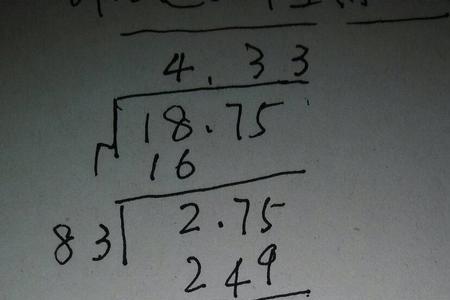 4.33
√18.75
16
83 2.75
249